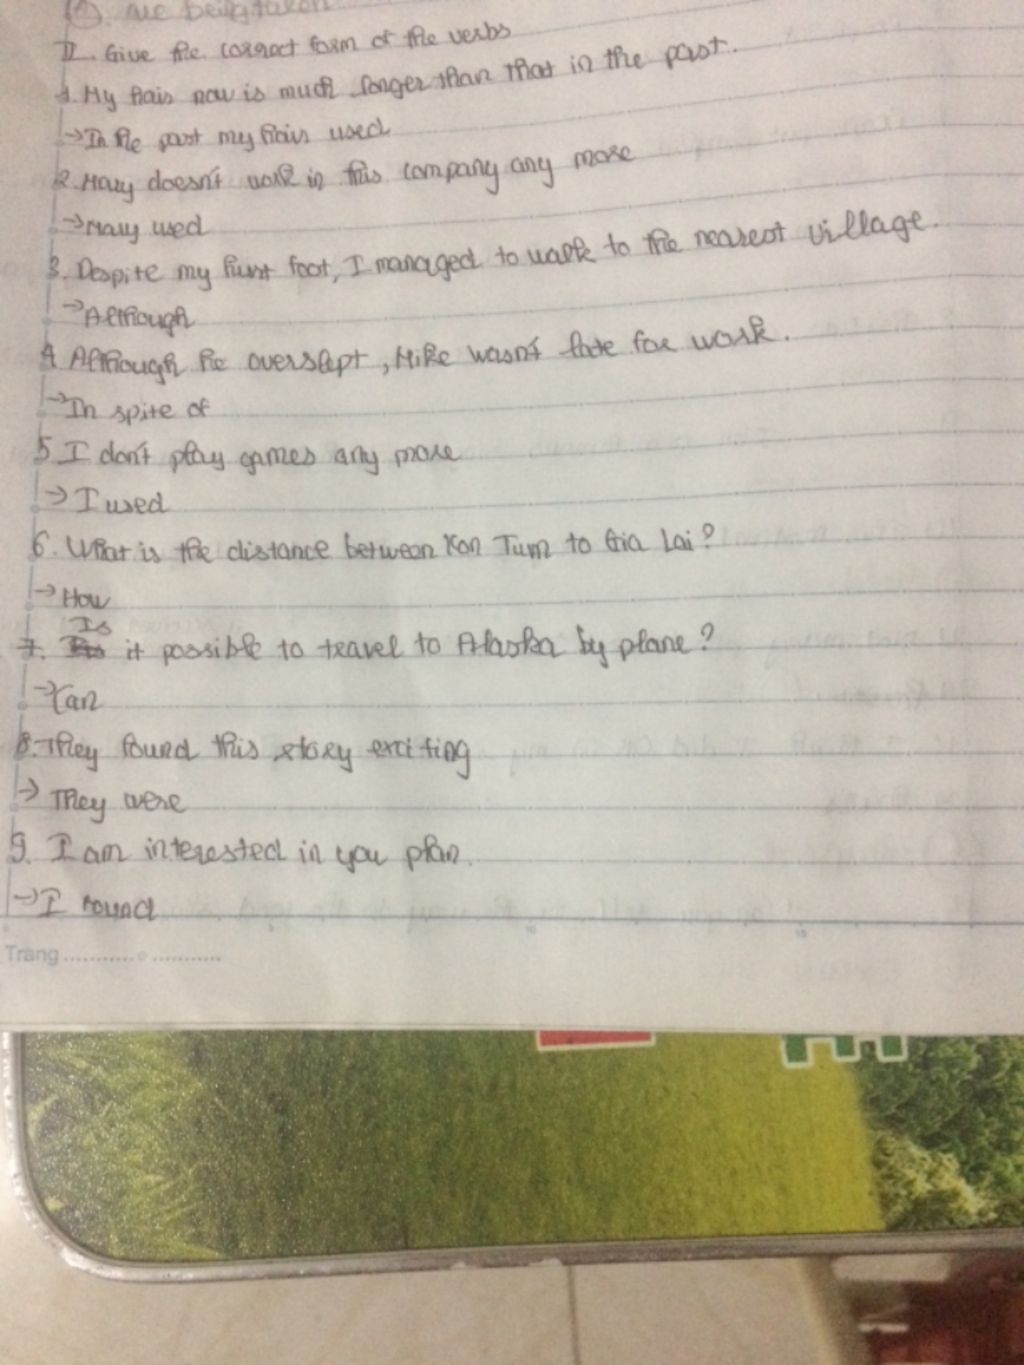 are being taken
II. Give the correct form of the verbs
1. My hair now is much longer than that in the past.
→In the past my hair used
2. Mary doesn't work in this company any more
→Mary used
3. Despite my hurt foot, I managed to walk to the nearest village.
→Although
4. Although he overslept, Mike wasn't late for work.
→In spite of
5. I don't play games any more
→ I used
6. What is the distance between Kon Tum to Gia Lai?
→ How
Is
7. it possible to travel to Alaska by plane?
→ Can
8. They found this story exciting
→ They were
9. I am interested in you plan.
→ I found
Trang